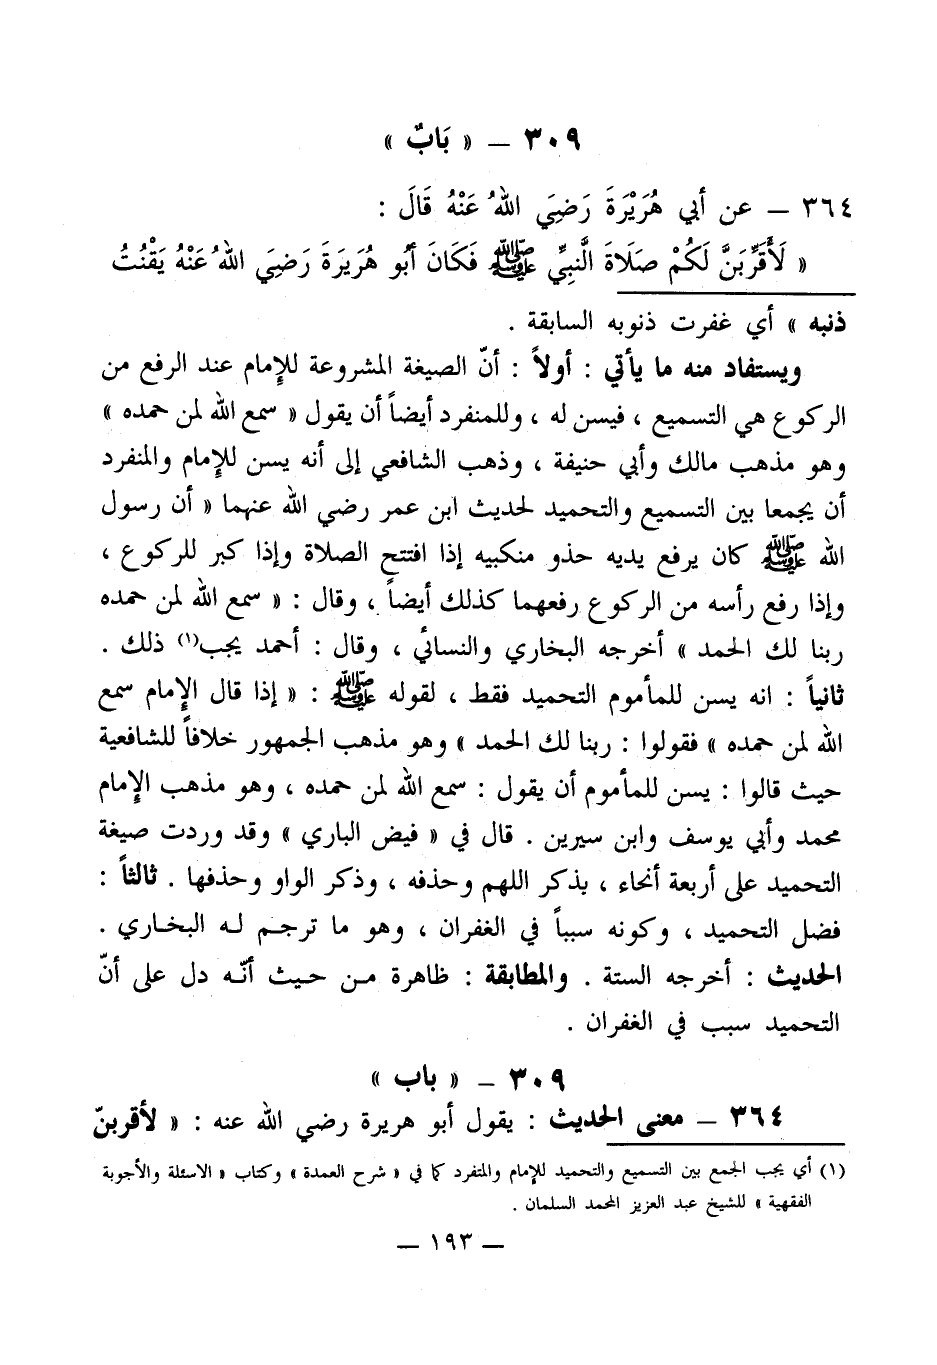 ٣٠٩ – « بَابٌ »
٣٦٤ – عن أبي هُرَيْرَةَ رَضِيَ اللهُ عَنْهُ قَالَ :
« لَأُقَرِّبَنَّ لَكُمْ صَلَاةَ النَّبِيِّ ﷺ فَكَانَ أَبُو هُرَيرَةَ رَضِيَ اللهُ عَنْهُ يَقْنُتُ
ذنبه » أي غفرت ذنوبه السابقة .
ويستفاد منه ما يأتي : أولاً : أنّ الصيغة المشروعة للإمام عند الرفع من
الركوع هي التسميع ، فيسن له ، وللمنفرد أيضاً أن يقول « سمع الله لمن حمده »
وهو مذهب مالك وأبي حنيفة ، وذهب الشافعي إلى أنه يسن للإمام والمنفرد
أن يجمعا بين التسميع والتحميد لحديث ابن عمر رضي الله عنهما « أن رسول
الله ﷺ كان يرفع يديه حذو منكبيه إذا افتتح الصلاة وإذا كبر للركوع ،
وإذا رفع رأسه من الركوع رفعهما كذلك أيضاً ، وقال : « سمع الله لمن حمده
ربنا لك الحمد » أخرجه البخاري والنسائي ، وقال : أحمد يجب(١) ذلك .
ثانياً : انه يسن للمأموم التحميد فقط ، لقوله ﷺ : « إذا قال الإمام سمع
الله لمن حمده » فقولوا : ربنا لك الحمد » وهو مذهب الجمهور خلافاً للشافعية
حيث قالوا : يسن للمأموم أن يقول : سمع الله لمن حمده ، وهو مذهب الإمام
محمد وأبي يوسف وابن سيرين . قال في « فيض الباري » وقد وردت صيغة
التحميد على أربعة أنحاء ، بذكر اللهم وحذفه ، وذكر الواو وحذفها . ثالثاً :
فضل التحميد ، وكونه سبباً في الغفران ، وهو ما ترجم له البخاري .
الحديث : أخرجه الستة . والمطابقة : ظاهرة من حيث أنّه دل على أنّ
التحميد سبب في الغفران .
٣٠٩ – « باب »
٣٦٤ – معنى الحديث : يقول أبو هريرة رضي الله عنه : « لأقربنّ
(١) أي يجب الجمع بين التسميع والتحميد للإمام والمتفرد كما في « شرح العمدة » وكتاب « الاسئلة والأجوبة
الفقهية » للشيخ عبد العزيز المحمد السلمان .
– ١٩٣ –